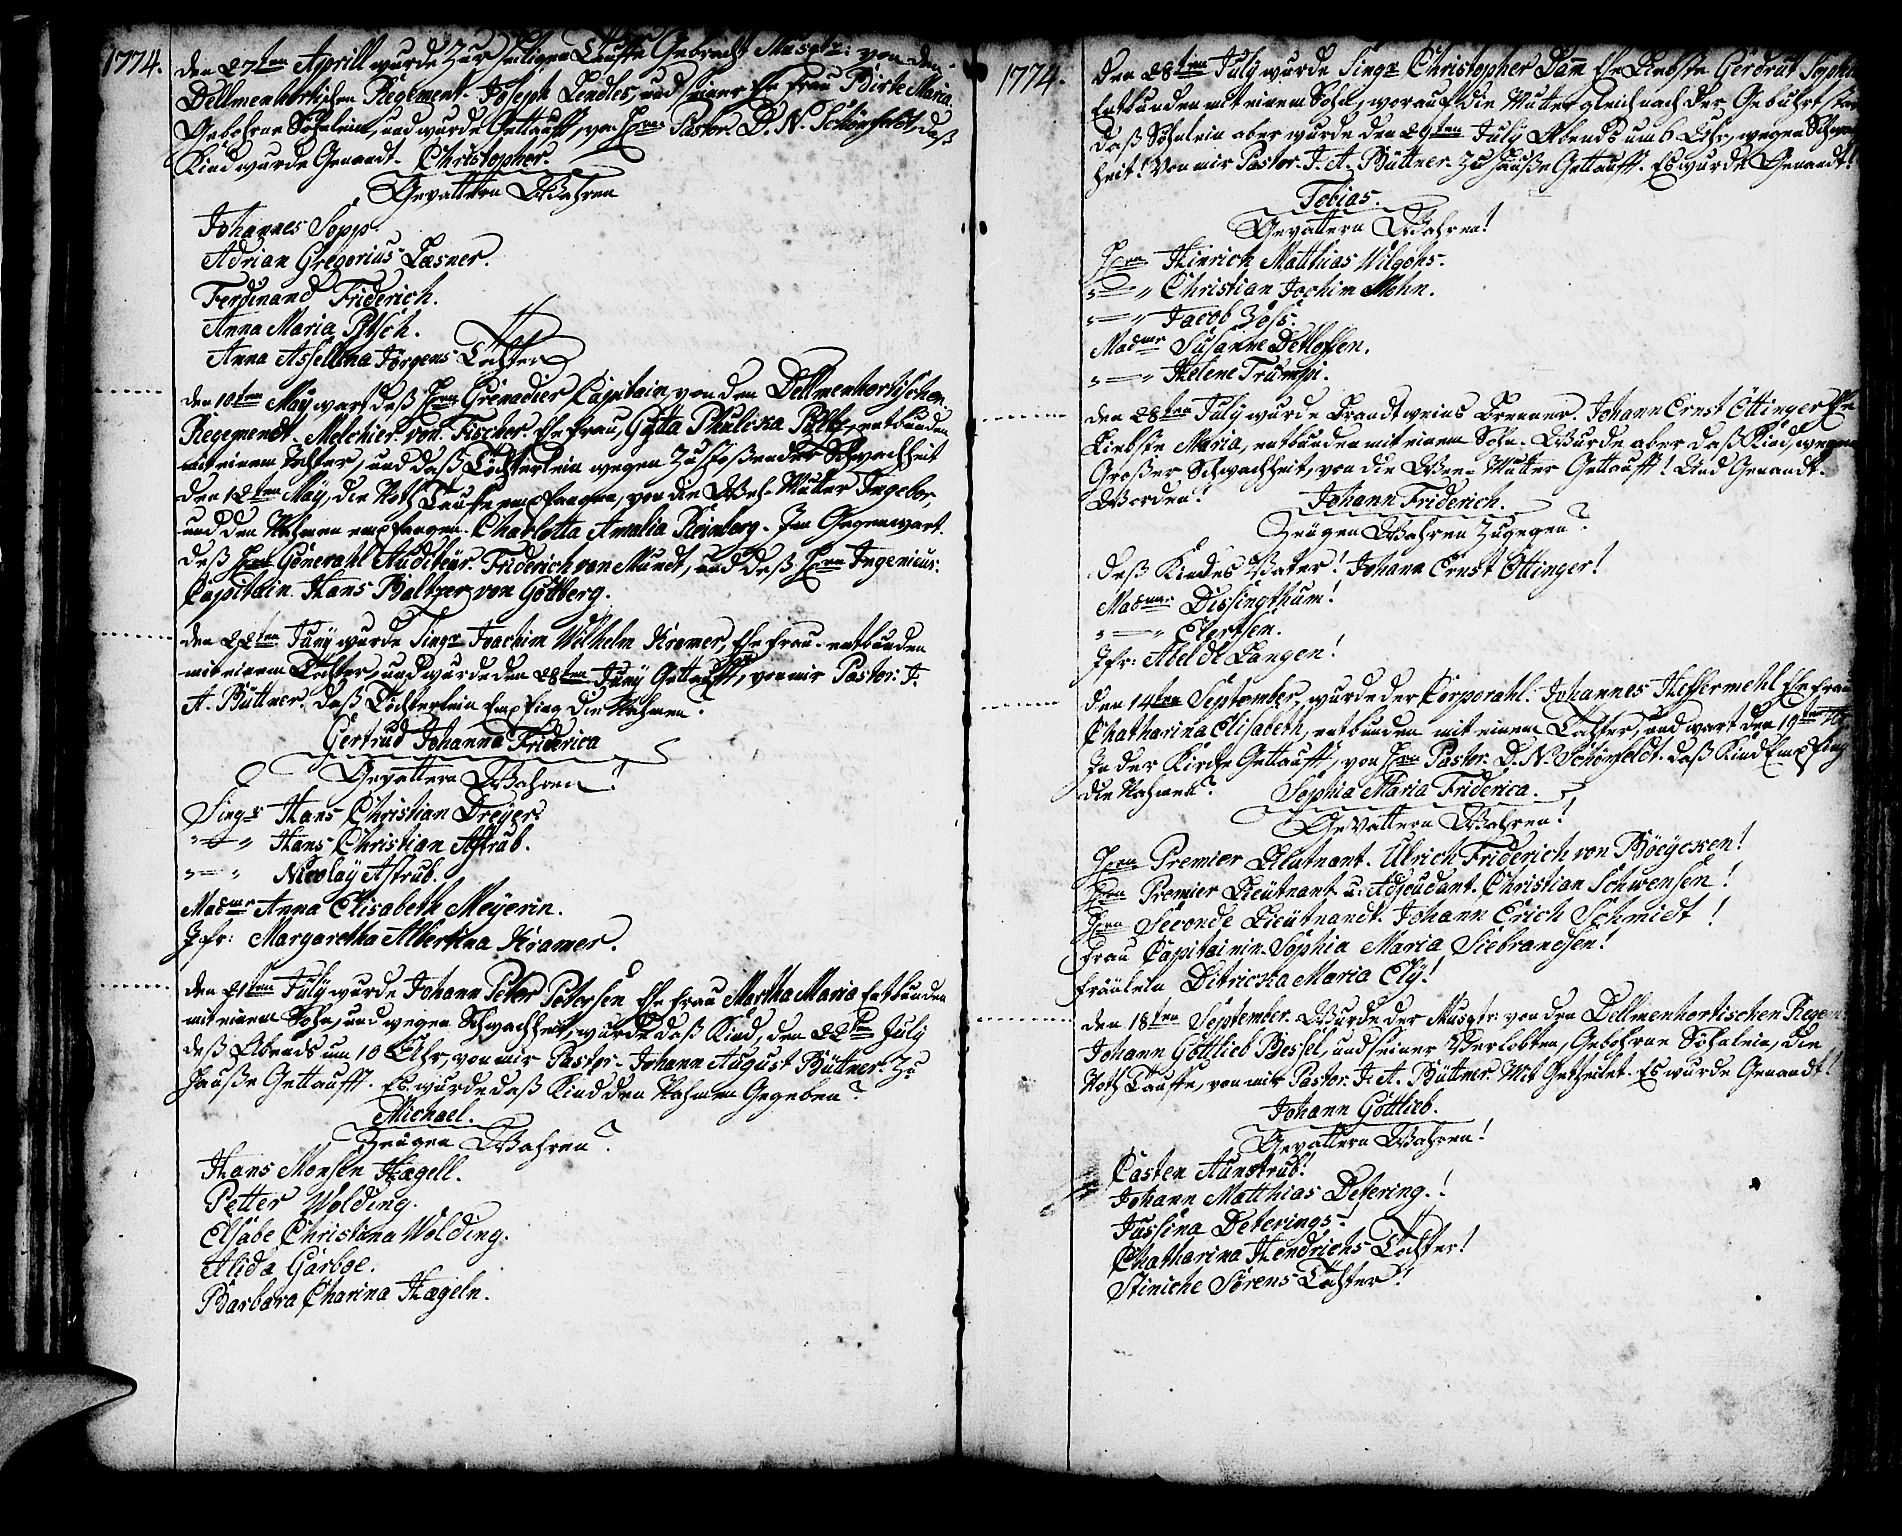 1774.
den 27ten Aprill wurde zur heiligen Tauffe Gebracht Musqtr: von den
Dellmenhortischen Regiment. Joseph Lendles, und seiner Ehe frau Birte Maria.
Gebohrne Söhnlein, und wurde Gettaufft, von Hrn Pastor D. N. Schönfeldt, daß
Kind wurde Genandt. Christopher.
Gevattern Wahren
Johannes Sopp.
Adrian Gregorius Læsner.
Ferdinand Friderich.
Anna Maria Pitsch.
Anna Assellena Jörgens Tochter
den 10ten May wart deß Hrn Grenadier Capitain, von den Dellmenhortischen
Regemendt. Melchier von Fischer. Ehe frau, Gÿtta Phulicka Poltz, entbunden
mit einem Tochter, und daß Töchterlein wegen zustoßender Schwachheit
den 12ten May, die Noth Taufe empfangen, von die Weh-Mutter Ingebor,
und den Nahmen empfangen. Charlotta Amalia Reinberg. Jn Gegenwart.
deß Hrn Generahl Auditeur. Friderich von Mundt, und deß Hrn Ingenieur:
Capitain Hans Baltzer von Gödberg.
den 22ten Juny wurde Singr Joachim Wilhelm Kramer, Ehe frau. entbunden
mit einem Tochter, und wurde den 28ten Juny Gettaufft, von mir Pastor: J.
A. Büttner. daß Töchterlein Empfing die Nahmen?
Gertrud Johanna Friderica
Gevattern Wahren!
Singr Hans Christian Dreyer.
" — " Hans Christian Astrub.
" — " Nicolaÿ Astrub.
Madme Anna Elisabeth Meyerin.
Jfr: Margaretha Albertina Kramer.
den 21ten July wurde Johann Peter Petersen Ehe frau Martha Maria Entbunden
mit einem Sohn, und wegen Schwachheit, wurde daß Kind, den 22ten July
deß Abends um 10 Uhr, von mir Pastor. Johann August Büttner. zu
Hauße Gettaufft. Es wurde daß Kind den Nahmen Gegeben?
Michael.
Zeugen Wahren?
Hans Monsen Hægell.
Petter Wolding.
Elsabe Christana Wolding.
Alida Garboe.
Barbara Charina Hægeln.
1774.
den 28ten July wurde Singr Christopher Dam Ehe Liebste Gerdrut Sophia
Entbunden mit einem Sohn, worauf die Mutter gleich nach der Gebuhrt
daß Söhnlein aber wurde den 29ten July Abends um 6 Uhr, wegen
heit! Von mir Pastor. J. A. Büttner. zu Hauße Gettaufft. Es wurde Genandt!
Tobias.
Gevattern Wahren!
Hrn Hinrich Matthias Wilgohs.
" — " Christian Jochim Mohn.
" — " Jacob Zöss.
Madme Susanne Detloffen.
" — " Helene Trumpi.
den 28ten July wurde Brandtweins Brenner. Johann Ernst Öttinger Ehe
Liebste Maria, entbunden mit einem Sohn. Wurde aber daß Kind, wegen
Großer Schwachheit, von die Wee-Mutter Gettaufft! Und Genandt.
Worden!
Johann Friderich.
Zeugen Wahren zugegen?
deß Kindes Vater! Johann Ernst Öttinger!
Madme Dissingthum!
" — " Elertsen.
Jfr: Abel dl Langen!
den 14ten September, wurde der Corporahl. Johannes Hessermehl Ehe frau
Chatharina Elisabeth, entbunden mit einem Tochter, und wart den 19ten
Jn der Kirche Gettaufft, von Hrn Pastor: D. N. Schönfeldt. daß Kind Empfing
die Nahmen?
Sophia Maria Friderica.
Gevattern Wahren!
Hrn Premier Leutnant. Ulrich Friderich von Böeÿcken!
Hrn Premier Lieutnant u: Adjeudant. Christian Schwensen!
Hrn Seconde Lieutnandt. Johann Erich Schmidt!
Frau Capitainin. Sophia Maria Siebrandsen!
Fräulein Ditricka Maria Elÿ!
den 18ten September. Wurde der Musqtr: von den Dellmenhortischen Regem:
Johann Göttlieb Bessel, und seiner Verlobten, Gebohrne Söhnlein, die
Noth Tauffe, von mir Pastor. J. A. Büttner. Mit Getheilet. Es wurde Genandt!
Johann Göttlieb.
Gevattern Wahren!
Casten Aunstrub!
Johann Matthias Detering.!
Jussina Deterings!
Chatharina Hendrichs Tochter!
Stiniche Sörens Tochter!